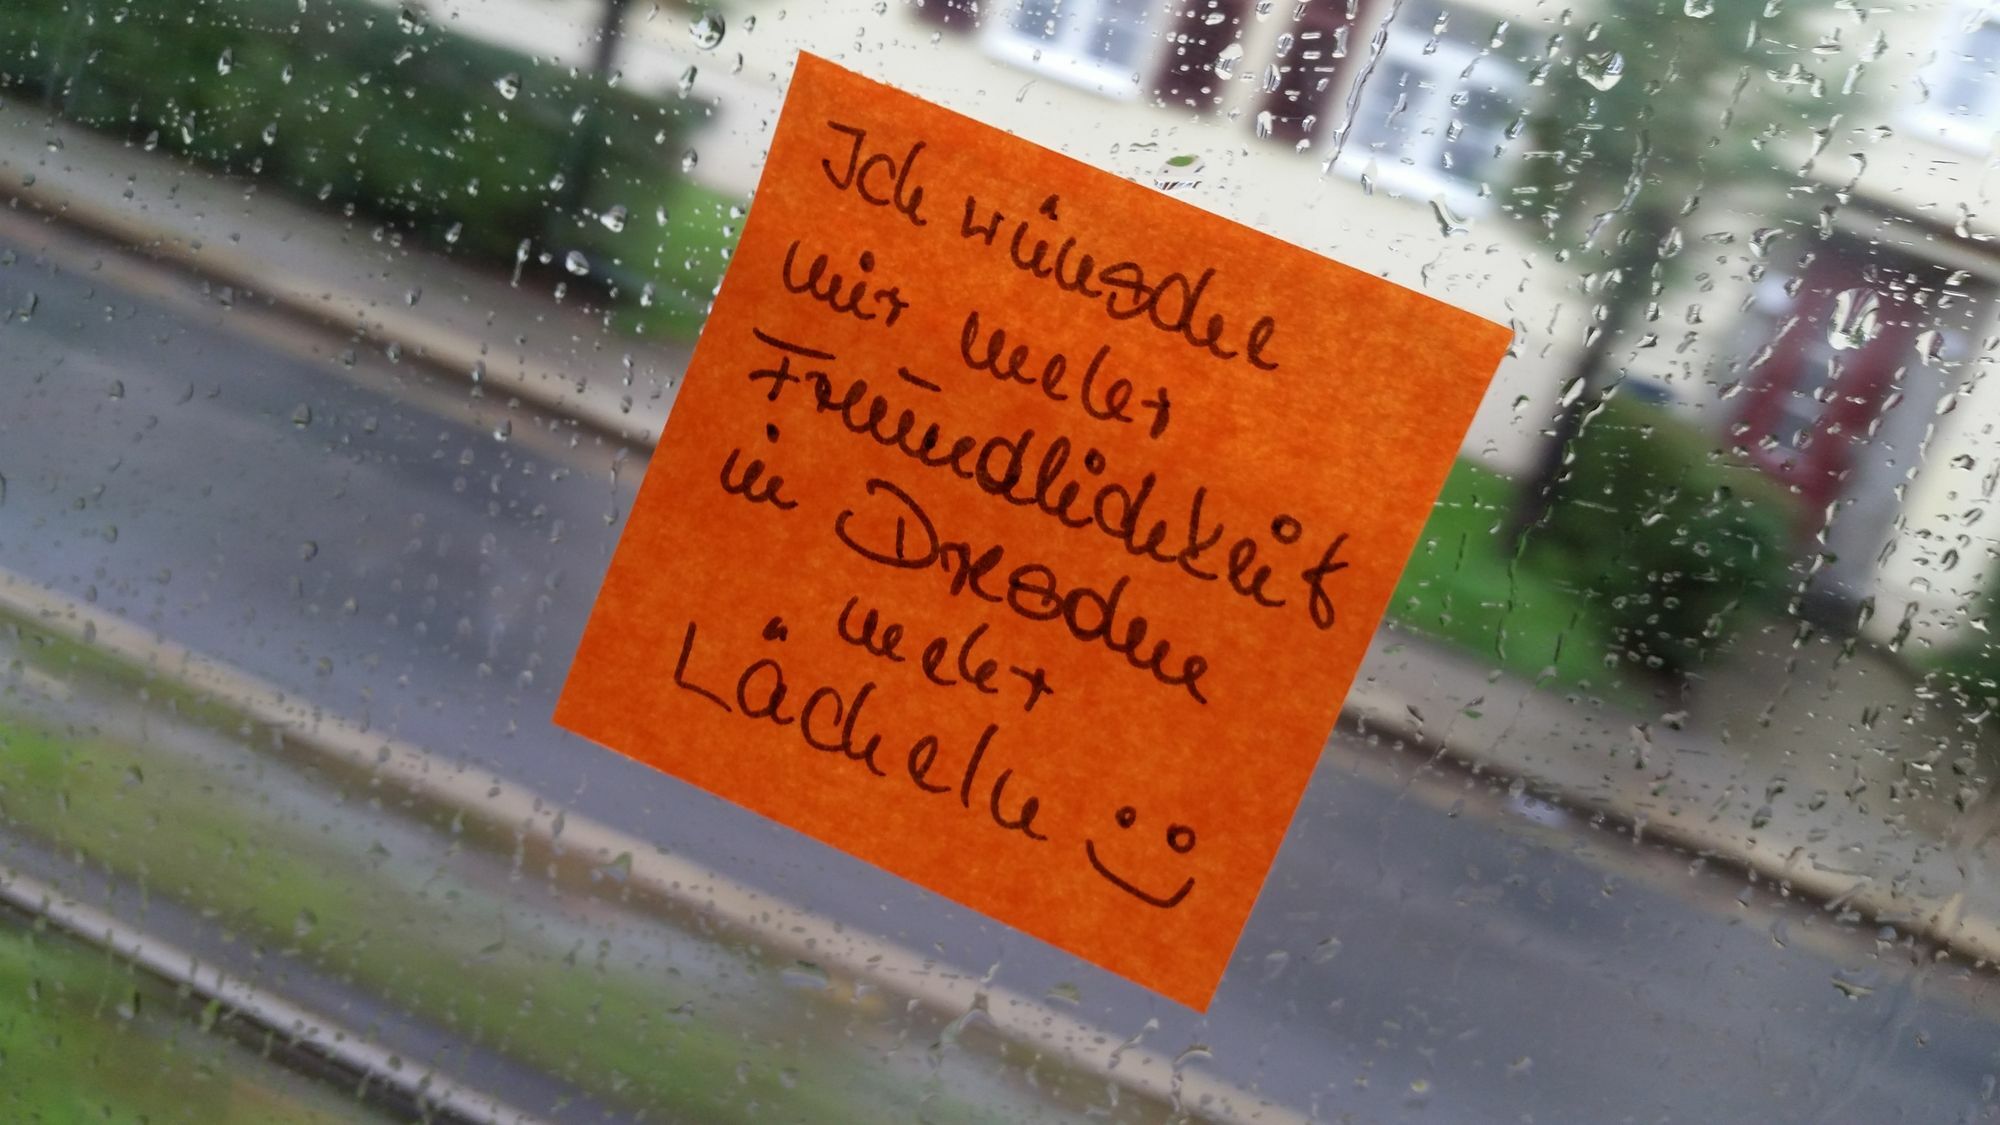 Ich wünsche
mir mehr
Freundlichkeit
in Dresden
mehr
Lächeln :)